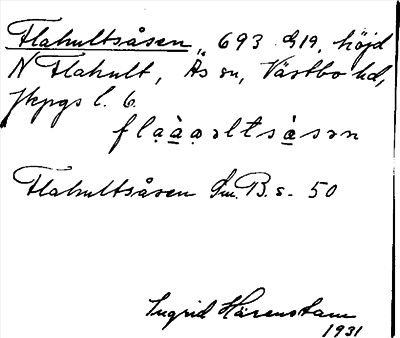 Flahultsåsen, 693 G19, höjd
N Flahult, Ås sn, Västbo hd,
Jkpgs l. 6.
flạàạəltsàsən
Flahultsåsen Sm.B. s. 50
Ingrid Härenstam
1931